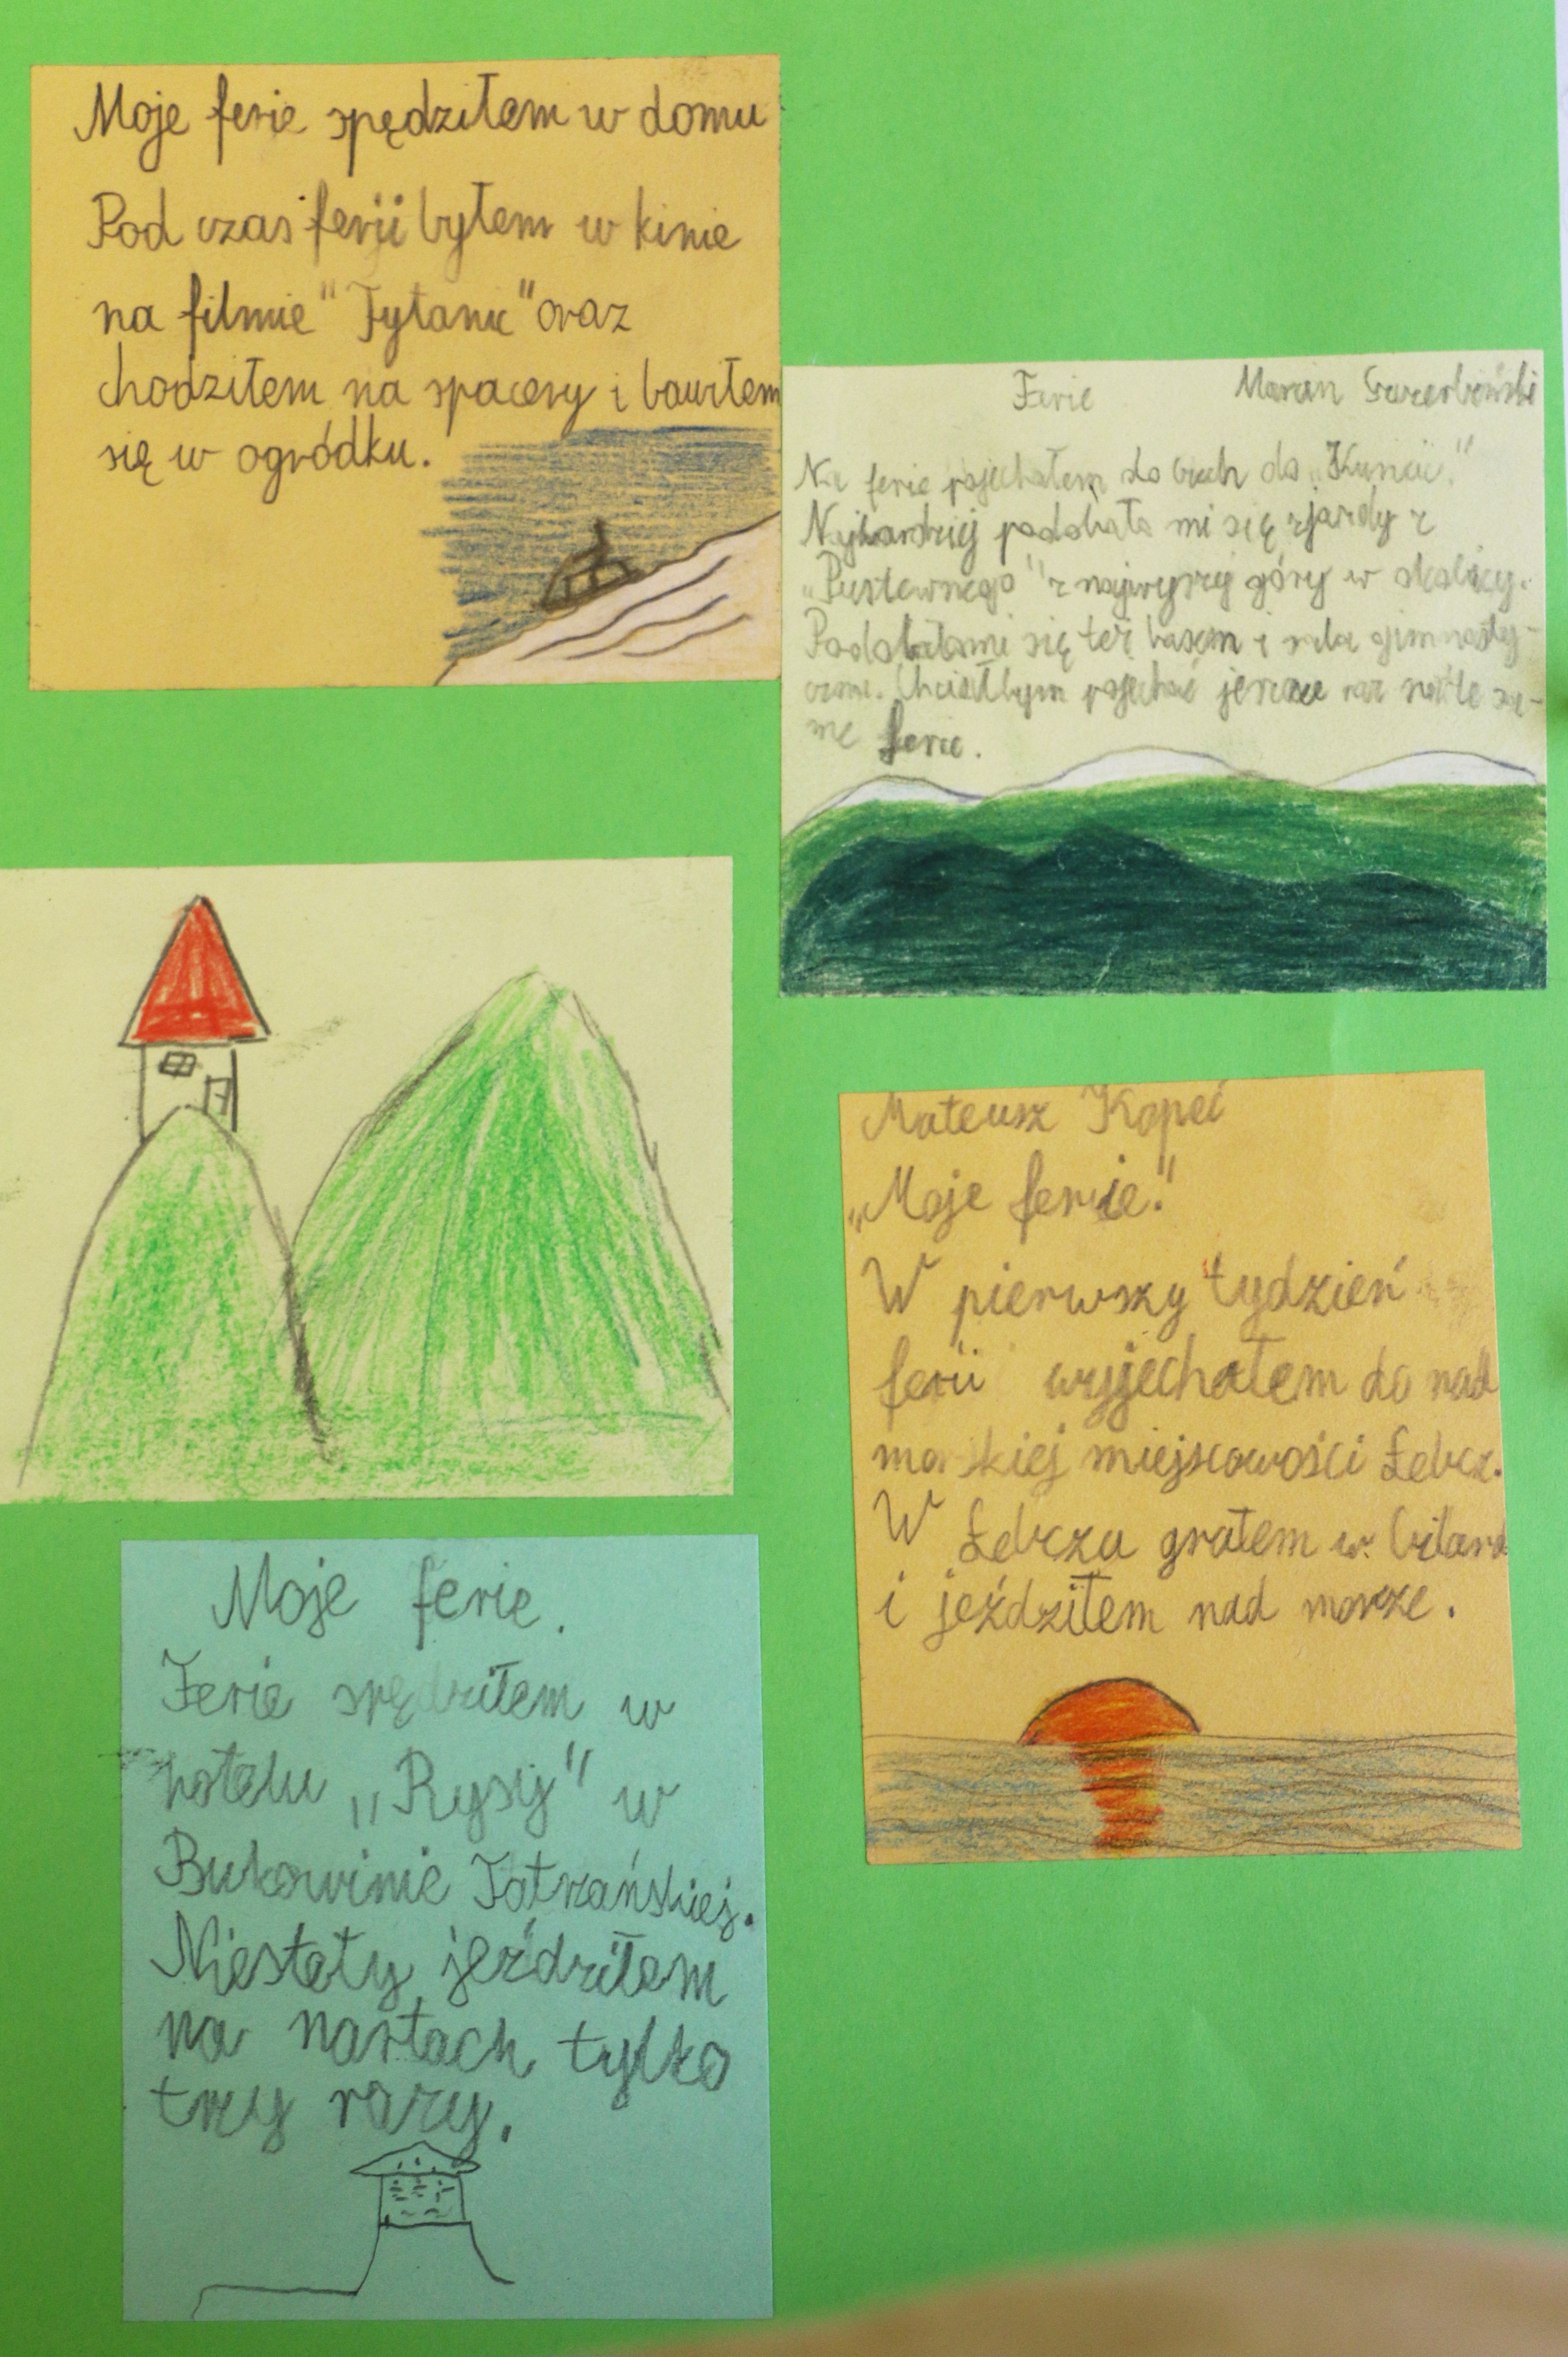 Moje ferie spędziłem w domu
Pod czas ferii byłem w kinie
na filmie "Tytanic" oraz
chodziłem na spacery i bawiłem
się w ogródku.
Ferie Marcin
Na ferie pojechałem do Czech do
Najbardziej podobało mi się zjazdy z
„Pustewnego" z najwyszej góry w okolicy.
Podobałomi się też basem i sala gimnasty-
czna. Chciałbym pojechać jeszcze raz na te sa-
me ferie.
Mateusz Kopeć
„Moje ferie."
W pierwszy tydzień
ferii wyjechałem do nad
morskiej miejscowości Łebcz.
W Łebczu grałem w bilard
i jeździłem nad morze.
Moje ferie.
Ferie spędziłem w
hotelu „Rysy" w
Bukowinie Tatrzańskiej.
Niestety jeździłem
na nartach tylko
trzy razy.